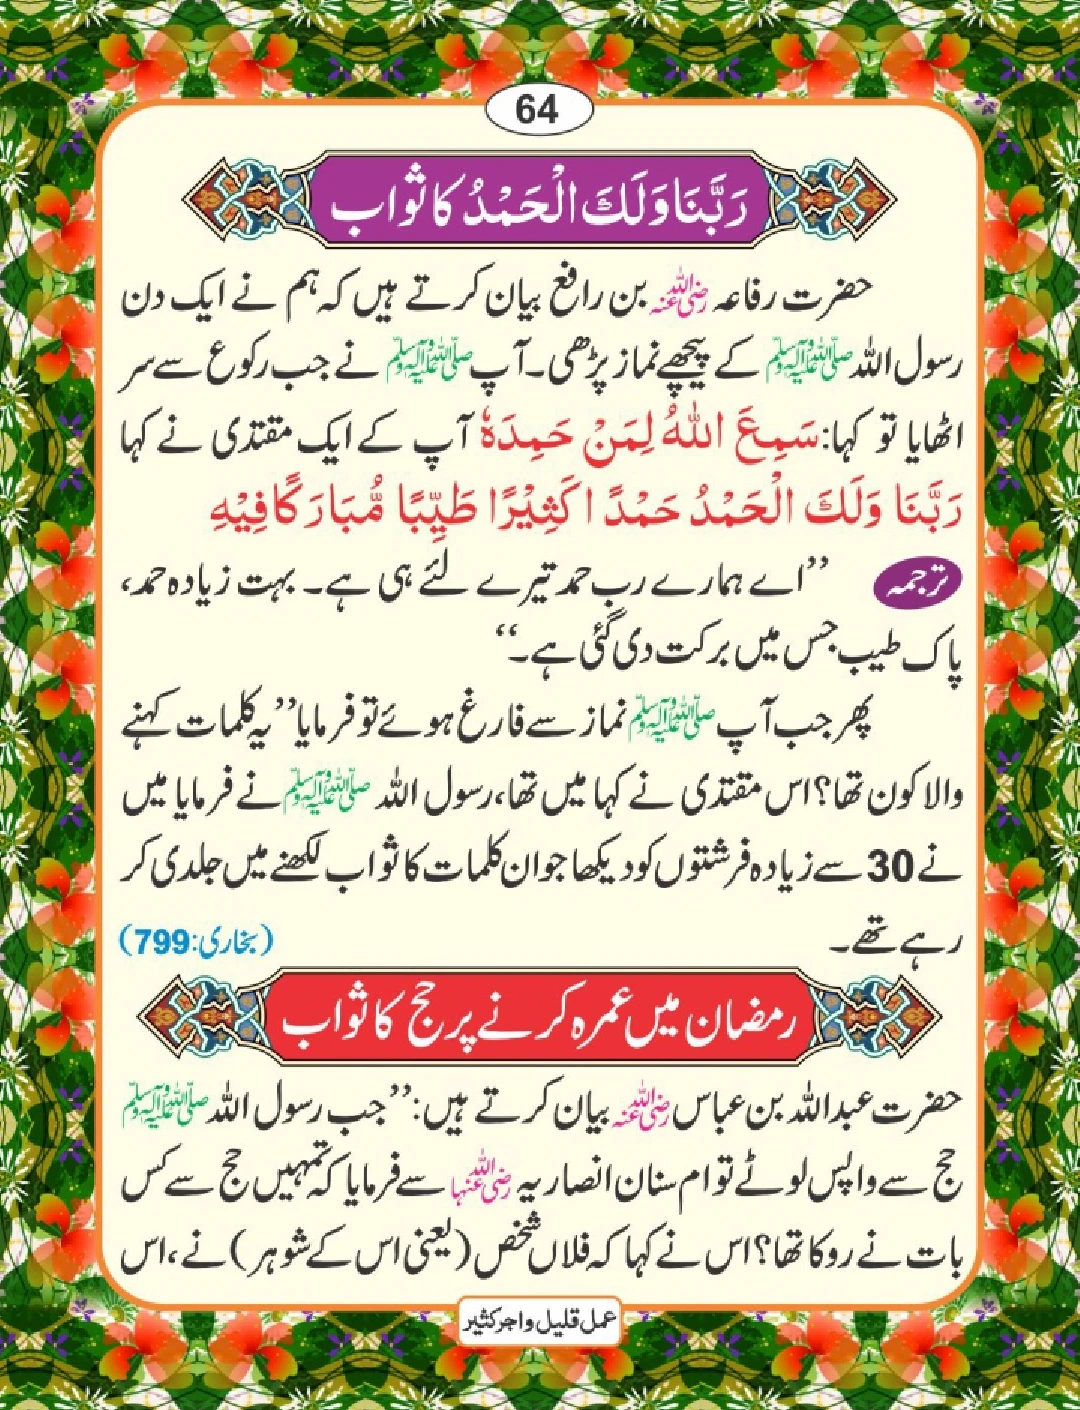 64
رَبَّنَا وَلَكَ الْحَمْدُ کا ثواب
حضرت رفاعہ رضی اللہ عنہ بن رافع بیان کرتے ہیں کہ ہم نے ایک دن
رسول اللہ صلی اللہ علیہ وآلہ وسلم کے پیچھے نماز پڑھی۔ آپ صلی اللہ علیہ وآلہ وسلم نے جب رکوع سے سر
اٹھایا تو کہا: سَمِعَ اللهُ لِمَنْ حَمِدَهٗ آپ کے ایک مقتدی نے کہا
رَبَّنَا وَلَكَ الْحَمْدُ حَمْدًا كَثِيْرًا طَيِّبًا مُّبَارَكًا فِيْهِ
ترجمہ ’’اے ہمارے رب حمد تیرے لئے ہی ہے۔ بہت زیادہ حمد،
پاک طیب جس میں برکت دی گئی ہے۔‘‘
پھر جب آپ صلی اللہ علیہ وآلہ وسلم نماز سے فارغ ہوئے تو فرمایا ’’یہ کلمات کہنے
والا کون تھا؟ اس مقتدی نے کہا میں تھا، رسول اللہ صلی اللہ علیہ وآلہ وسلم نے فرمایا میں
نے 30 سے زیادہ فرشتوں کو دیکھا جو ان کلمات کا ثواب لکھنے میں جلدی کر
رہے تھے۔ (بخاری:799)
رمضان میں عمرہ کرنے پر حج کا ثواب
حضرت عبداللہ بن عباس رضی اللہ عنہ بیان کرتے ہیں: ’’جب رسول اللہ صلی اللہ علیہ وآلہ وسلم
حج سے واپس لوٹے تو ام سنان انصاریہ رضی اللہ عنہا سے فرمایا کہ تمہیں حج سے کس
بات نے روکا تھا؟ اس نے کہا کہ فلاں شخص (یعنی اس کے شوہر) نے، اس
عمل قلیل و اجر کثیر